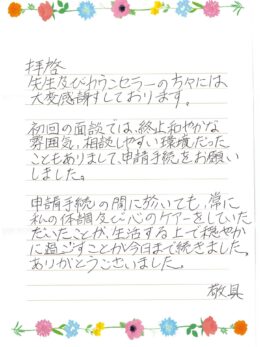 拝啓
先生及びカウンセラーの方々には
大変感謝しております。
初回の面談では、終止和やかな
雰囲気、相談しやすい環境だった
こともありまして、申請手続をお願い
しました。
申請手続の間に於いても、常に
私の体調及び心のケアーをしていた
だいたことが、生活する上で穏やか
に過ごすことが今日まで続きました。
ありがとうございました。
敬具